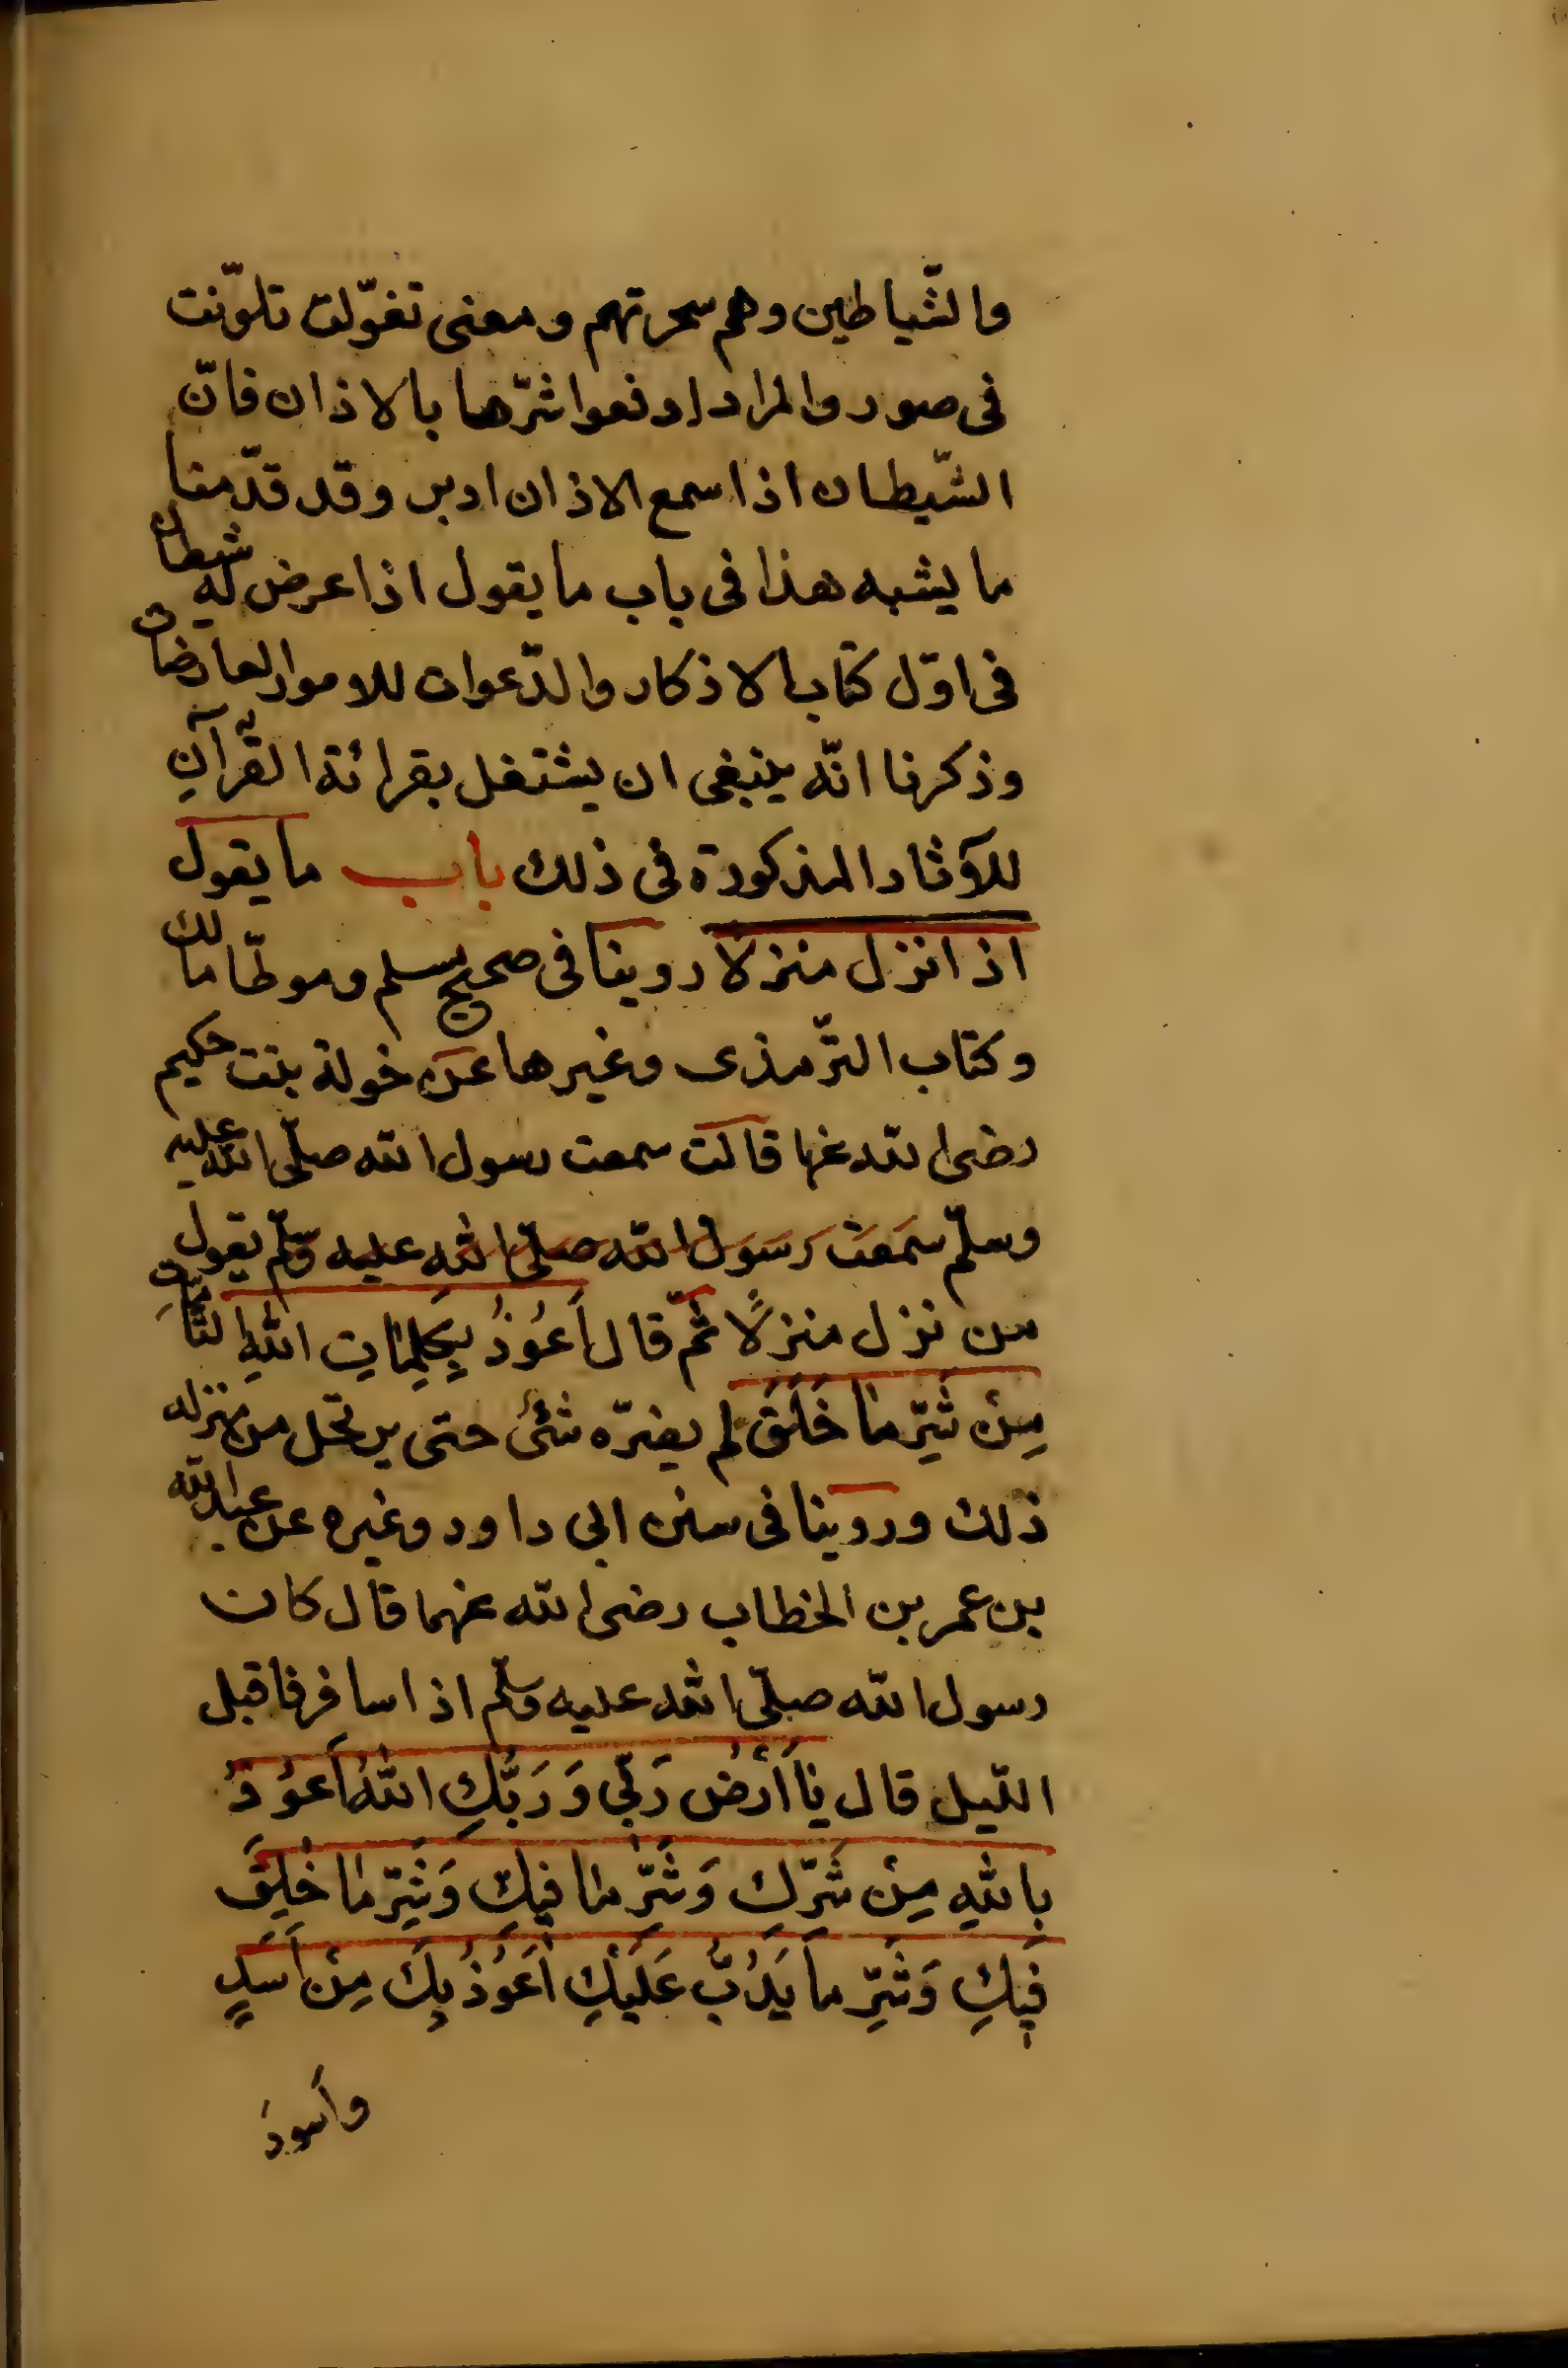 والشّياطين وهم سحرتهم ومعنى تغوّلت تلوّنت
فى صور والمراد ادفعوا شرّها بالاذان فانّ
الشّيطان اذا سمع الاذان ادبر وقد قدّمنا
ما يشبه هذا فى باب ما يقول اذا عرض له شيطان
فى اوّل كتاب الاذكار والدّعوات للامور العارضات
وذكرنا انّه ينبغى ان يشتغل بقرائة القُرآنِ
للآثار المذكورة فى ذلك باب ما يقول
اذا نزل منزلًا روينا فى صحيح مسلم وموطّا مالك
وكتاب التّرمذى وغيرها عن خولة بنت حكيم
رضى الله عنها قالت سمعت رسول الله صلّى الله عليه
وسلّم سَمعَتْ رَسَوَل الله صلّى الله عليه وسلّم يقول
من نزل منزلًا ثمّ قال اَعُوَذُ بِكَلِمَاتِ اللهِ التَّامَّاتِ
مِنْ شَرِّ مَا خَلَقَ لم يضرّه شئ حتى يرتحل من منزله
ذلك وروينا فى سنن ابى داود وغيره عن عبد الله
بن عمر بن الخطاب رضى الله عنهما قال كان
رسول الله صلّى الله عليه وسلّم اذا سافر فاقبل
اللّيل قال يَا أَرْضُ رَبِّي وَرَبُّكِ اللهُ اَعُوَذُ
بِاللهِ مِنْ شَرِّكِ وَشَرِّ مَا فِيكِ وَشَرِّ مَا خُلِقَ
فِيكِ وَشَرِّ مَا يَدُبُّ عَلَيْكِ اَعُوَذُ بِكَ مِنْ اَسَدٍ
واَسودَ